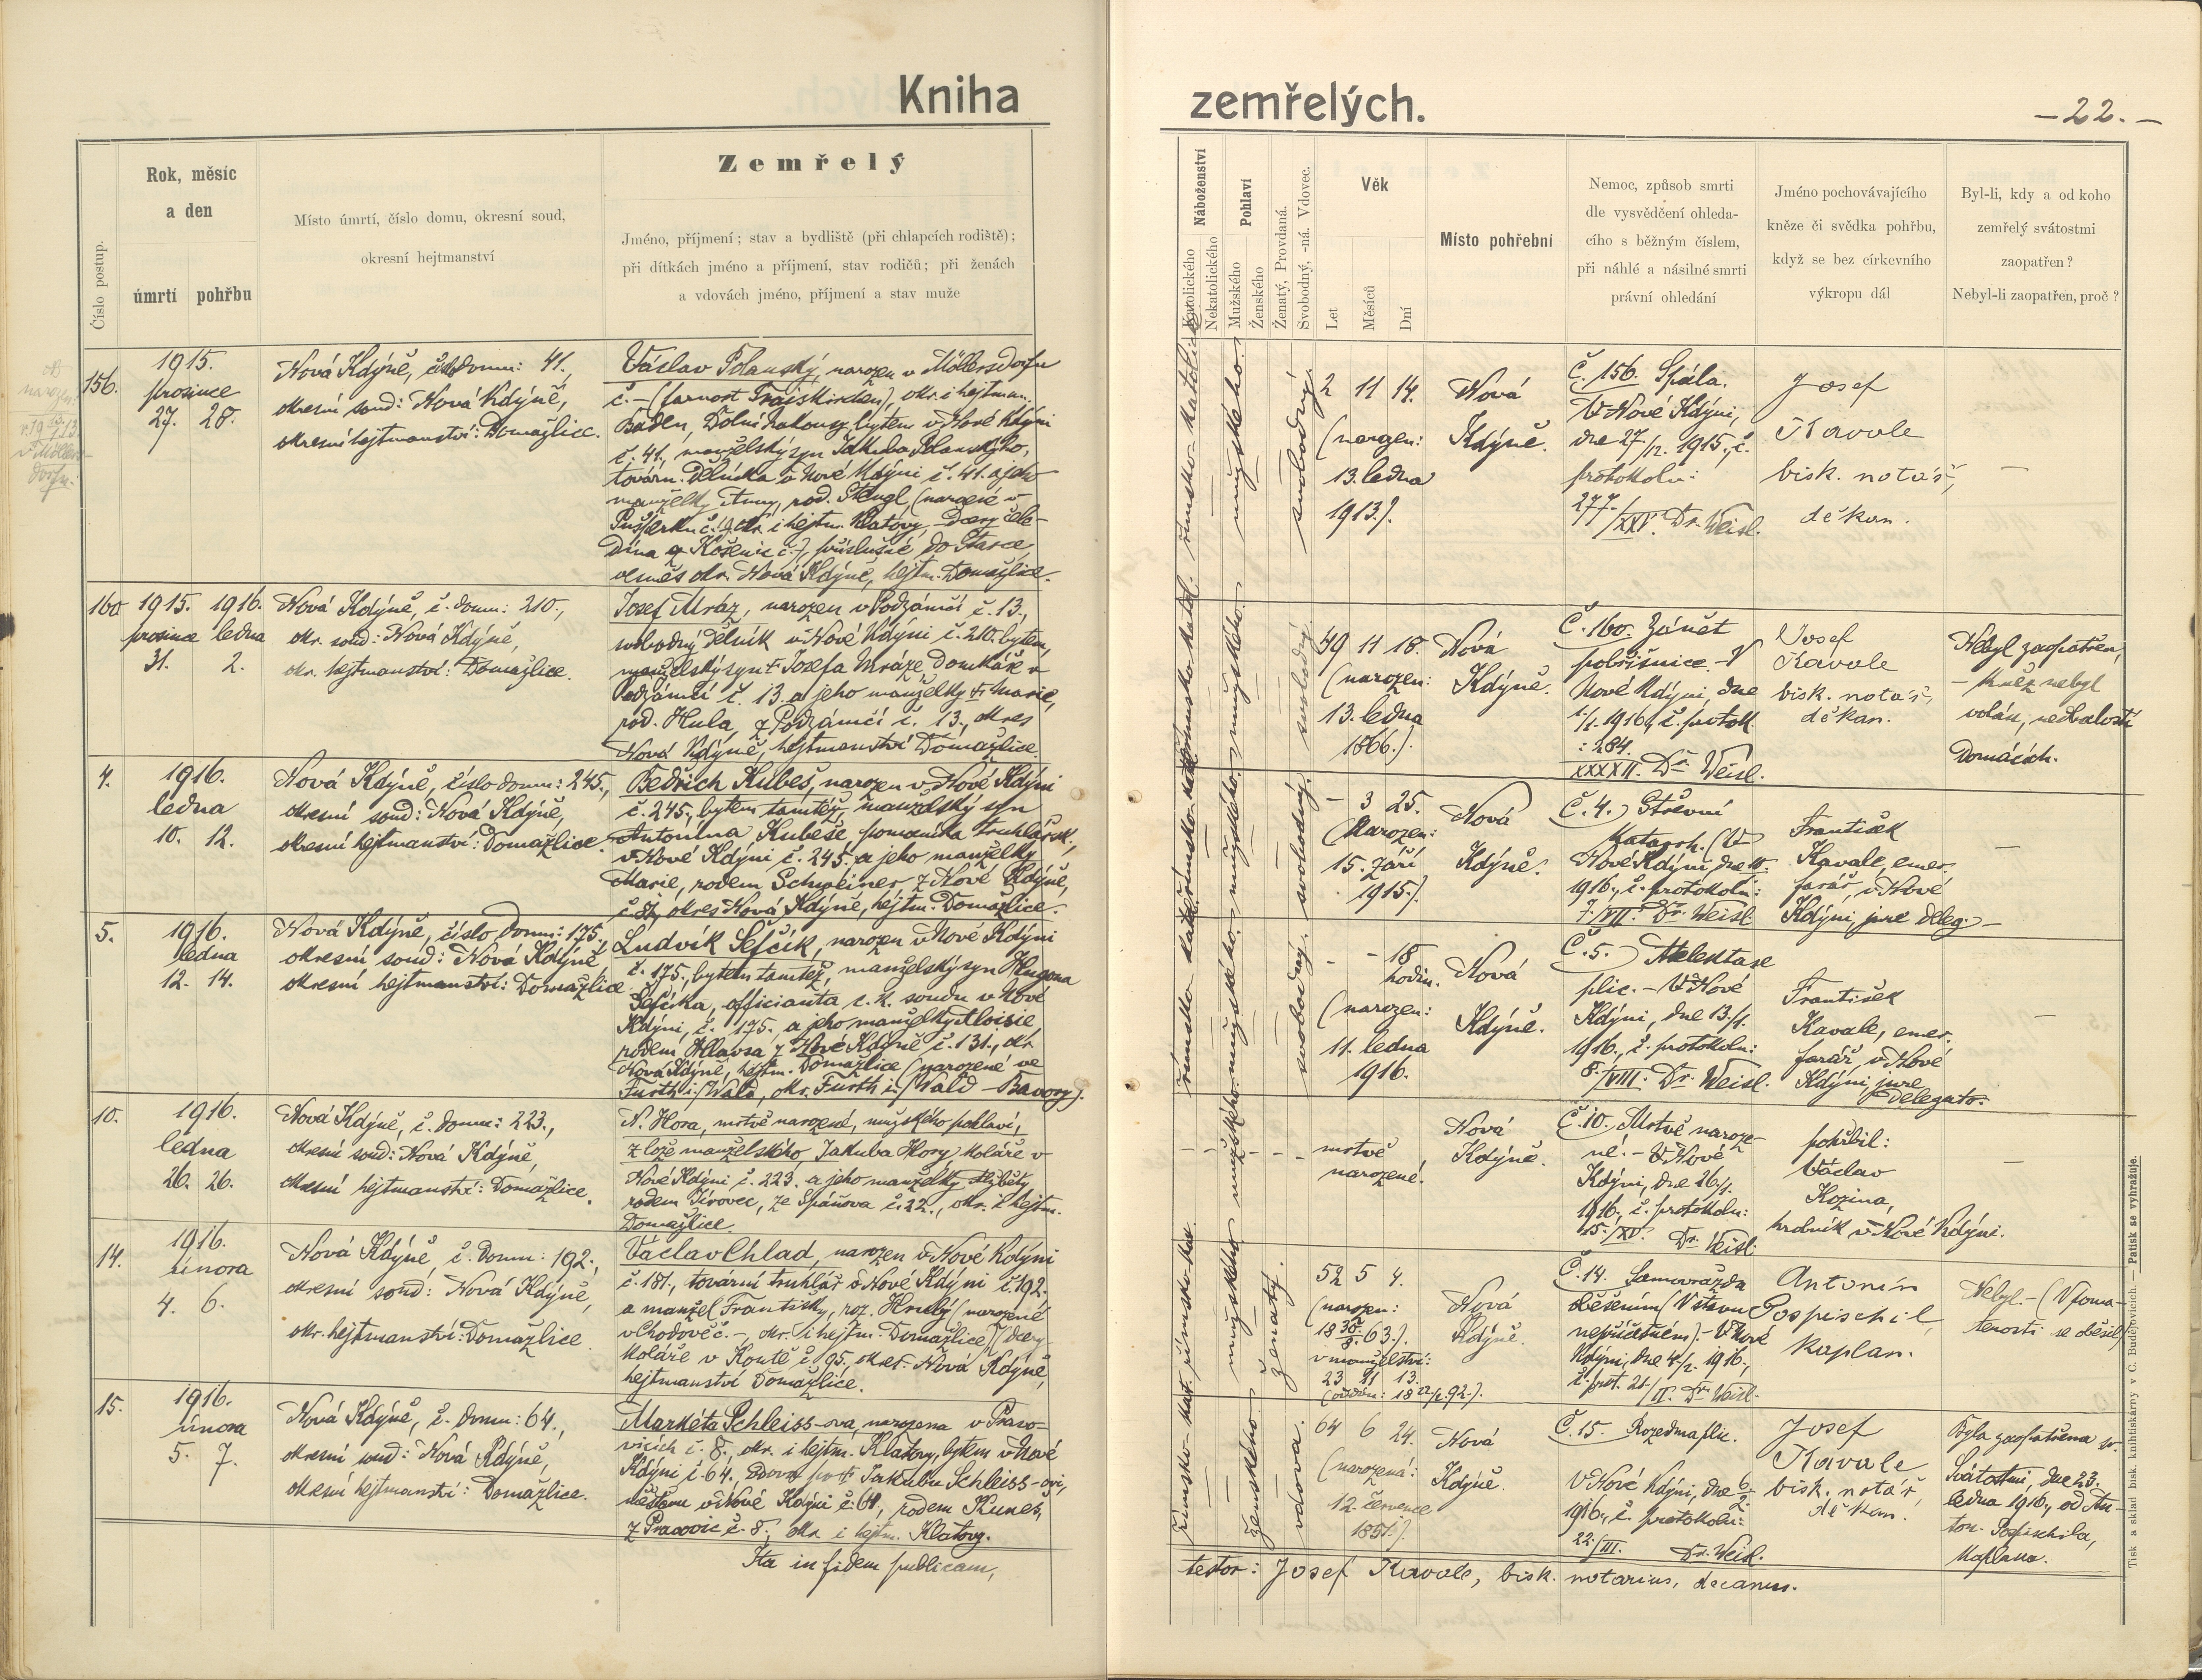 Kniha
Číslo postup.
Rok, měsíc
a den
úmrtí pohřbu
Místo úmrtí, číslo domu, okresní soud,
okresní hejtmanství
Zemřelý
Jméno, příjmení; stav a bydliště (při chlapcích rodiště);
při dítkách jméno a příjmení, stav rodičů; při ženách
a vdovách jméno, příjmení a stav muže
156.
1915.
prosince
27. 28.
Nová Kdýně, číslo domu: 41.,
okresní soud: Nová Kdýně,
okresní hejtmanství: Domažlice.
Václav Polanský, narozen v Möllersdorfu
č. – (farnost Traiskirchen), okr. i hejtman.
Baden, Dolní Rakousy, bytem v Nové Kdýni
č. 41., manželský syn Jakuba Polanského,
továrn. dělníka v Nové Kdýni č. 41. a jeho
manželky Anny, rod. Stengl, (narozené v
okr. i hejtm. Klatovy, – dcery čele-
dína z č. –), příslušné do
vesměs okr. Nová Kdýně, hejtm. Domažlice.
160.
1915. 1916.
prosince ledna
31. 2.
Nová Kdýně, č. domu: 210.,
okr. soud: Nová Kdýně,
okr. hejtmanství: Domažlice.
Josef Mráz, narozen v Podzámčí č. 13.,
svobodný dělník v Nové Kdýni č. 210. bytem,
manželský syn † Josefa Mráze domkáře v
Podzámčí č. 13. a jeho manželky † Marie,
rod. Hula, z Podzámčí č. 13., okres
Nová Kdýně, hejtmanství Domažlice.
4.
1916.
ledna
10. 12.
Nová Kdýně, číslo domu: 245.,
okresní soud: Nová Kdýně,
okresní hejtmanství: Domažlice.
Bedřich Kubeš, narozen v Nové Kdýni
č. 245., bytem tamtéž, manželský syn
Antonína Kubeše, pomocníka truhlářsk.,
v Nové Kdýni č. 245. a jeho manželky
Marie, rodem Schweiner z Nové Kdýně,
okres Nová Kdýně, hejtm. Domažlice.
5.
1916.
ledna
12. 14.
Nová Kdýně, číslo domu: 175.,
okresní soud: Nová Kdýně,
okresní hejtmanství: Domažlice.
Ludvík Šefčík, narozen v Nové Kdýni
č. 175., bytem tamtéž, manželský syn Hugona
Šefčíka, officianta c. k. soudu v Nové
Kdýni, č. 175. a jeho manželky Aloisie,
rodem Hlavsa z Nové Kdýně č. 131., okr.
Nová Kdýně, hejtm. Domažlice (narozené ve
Furth i./Wald, okr. Furth i./Wald – Bavory).
10.
1916.
ledna
26. 26.
Nová Kdýně, č. domu: 223.,
okresní soud: Nová Kdýně,
okresní hejtmanství: Domažlice.
N. Hora, mrtvě narozené, mužského pohlaví,
z lože manželského, Jakuba Hory koláře v
Nové Kdýni č. 223. a jeho manželky Alžběty
rodem Jírovec, ze Spáňova č. 22., okr. i hejtm.
Domažlice.
14.
1916.
února
4. 6.
Nová Kdýně, č. domu: 192.,
okresní soud: Nová Kdýně,
okr. hejtmanství: Domažlice.
Václav Chlad, narozen v Nové Kdýni
č. 181., tovární truhlář v Nové Kdýni č. 192.
a manžel Františky, roz. Hrubý (narozené
v Chodově č. –, okr. i hejtm. Domažlice) dcery
koláře v Koutě č. 95., okres. Nová Kdýně,
hejtmanství Domažlice.
15.
1916.
února
5. 7.
Nová Kdýně, č. domu: 64.,
okresní soud: Nová Kdýně,
okresní hejtmanství: Domažlice.
Markéta Schleiss-ova, narozena v Praso-
vicích č. 8., okr. i hejtm. Klatovy, bytem v Nové
Kdýni č. 64., vdova po † Jakubu Schleiss-ovi,
v Nové Kdýni č. 64., rodem Kuneš,
č. 8., okr. i hejtm. Klatovy.
Ita in fidem publicam,
zemřelých.
–22.–
Náboženství
Katolického
Nekatolického
Pohlaví
Mužského
Ženského
Ženatý, Provdaná.
Svobodný, -ná. Vdovec.
Věk
Let
Měsíců
Dní
Místo pohřební
Nemoc, způsob smrti
dle vysvědčení ohleda-
cího s běžným číslem,
při náhlé a násilné smrti
právní ohledání
Jméno pochovávajícího
kněze či svědka pohřbu,
když se bez církevního
výkropu dál
Byl-li, kdy a od koho
zemřelý svátostmi
zaopatřen?
Nebyl-li zaopatřen, proč?
římsko-katolické
mužského
svobodný
2 11 14.
(narozen:
13. ledna
1913.).
Nová
Kdýně.
Č. 156. Spála.
V Nové Kdýni,
dne 27./12. 1915., č.
protokolu:
277./XXV. Dr. Weisl.
Josef
Kavale
bisk. notář,
děkan.
–
římsko-katol.
mužského
svobodný
49 11 18.
(narozen:
13. ledna
1866.).
Nová
Kdýně.
Č. 160. Zánět
pobřišnice. – V
Nové Kdýni dne
1./1. 1916., č. protok.
: 284.
XXXXII. Dr. Weisl.
Josef
Kavale
bisk. notář,
děkan.
Nebyl zaopatřen,
– kněz nebyl
volán, nedbalostí
domácích.
mužského
svobodný.
– 3 25.
(Narozen:
15. září
1915.).
Nová
Kdýně.
Č. 4.) Střevní
katarrh. (V
Nové Kdýni dne
1916., č. protokolu:
7./VII. Dr. Weisl.
František
Kavale, emer.
farář, v Nové
Kdýni, jure deleg. –
–
římsko-
mužského
svobodný.
– – 18
hodin.
(narozen:
11. ledna
1916.
Nová
Kdýně.
Č. 5.) Atelektase
plic. – V Nové
Kdýni, dne 13./1.
1916., č. protokolu:
8./VIII. Dr. Weisl.
František
Kavale, emer.
farář, v Nové
Kdýni, jure
delegato.
–
mužského
mrtvě
narozené.
Nová
Kdýně.
Č. 10. Mrtvě naroze-
né. – V Nové
Kdýni, dne 26./1.
1916., č. protokolu:
15./XV. Dr. Weisl.
pohřbil:
Václav
Kozina,
hrobník v Nové Kdýni.
–
římsko-kat.
mužského
ženatý.
52 5 4.
(narozen:
18 30/8. 63.).
v manželství:
23 11 13.
Nová
Kdýně.
Č. 14. Samovražda
oběšením (V stavu
nepříčetném). – V Nové
Kdýni, dne 4./2. 1916.,
č. prot. 21./II. Dr. Weisl.
Antonín
Pospischil,
kaplan.
Nebyl. – (V poma-
tenosti se oběsil)
římsko-kat.
ženského
vdova.
64 6 24.
(narozená:
12. července
1851.).
Nová
Kdýně.
Č. 15. Rozedma plic.
V Nové Kdýni, dne 6./2.
1916., č. protokolu:
22./III. Dr. Weisl.
Josef
Kavale
bisk. notář,
děkan.
Byla zaopatřena sv.
Svátostmi, dne 23.
ledna 1916., od An-
ton. Pospischila,
kaplana.
testor: Josef Kavale, bisk. notarius, decanus.
Tisk a sklad bisk. knihtiskárny v Č. Budějovicích. — Patisk se vyhražuje.